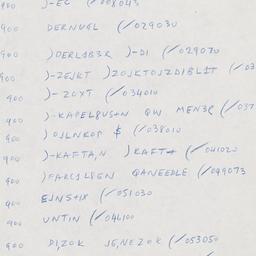 900 DERNUGL (/029030
900 )DERLAB3R )-DI (/029070
900 )-ZEJKT )ZOJKTOJZDIBLIT (/03
900 )-ZOXT (/034010
900 )-KAPELBUS+N QW MEN3R (/037
900 )OJLNKOP $ (/038010
900 )-KAFTA,N )KAFT+ (/041020
900 )FARCJLSEN QANEEDLE (/049073
900 EJNS+IX (/051030
900 UNTIN (/046100
900 DI,ZOK JE,NEZOK (/053050